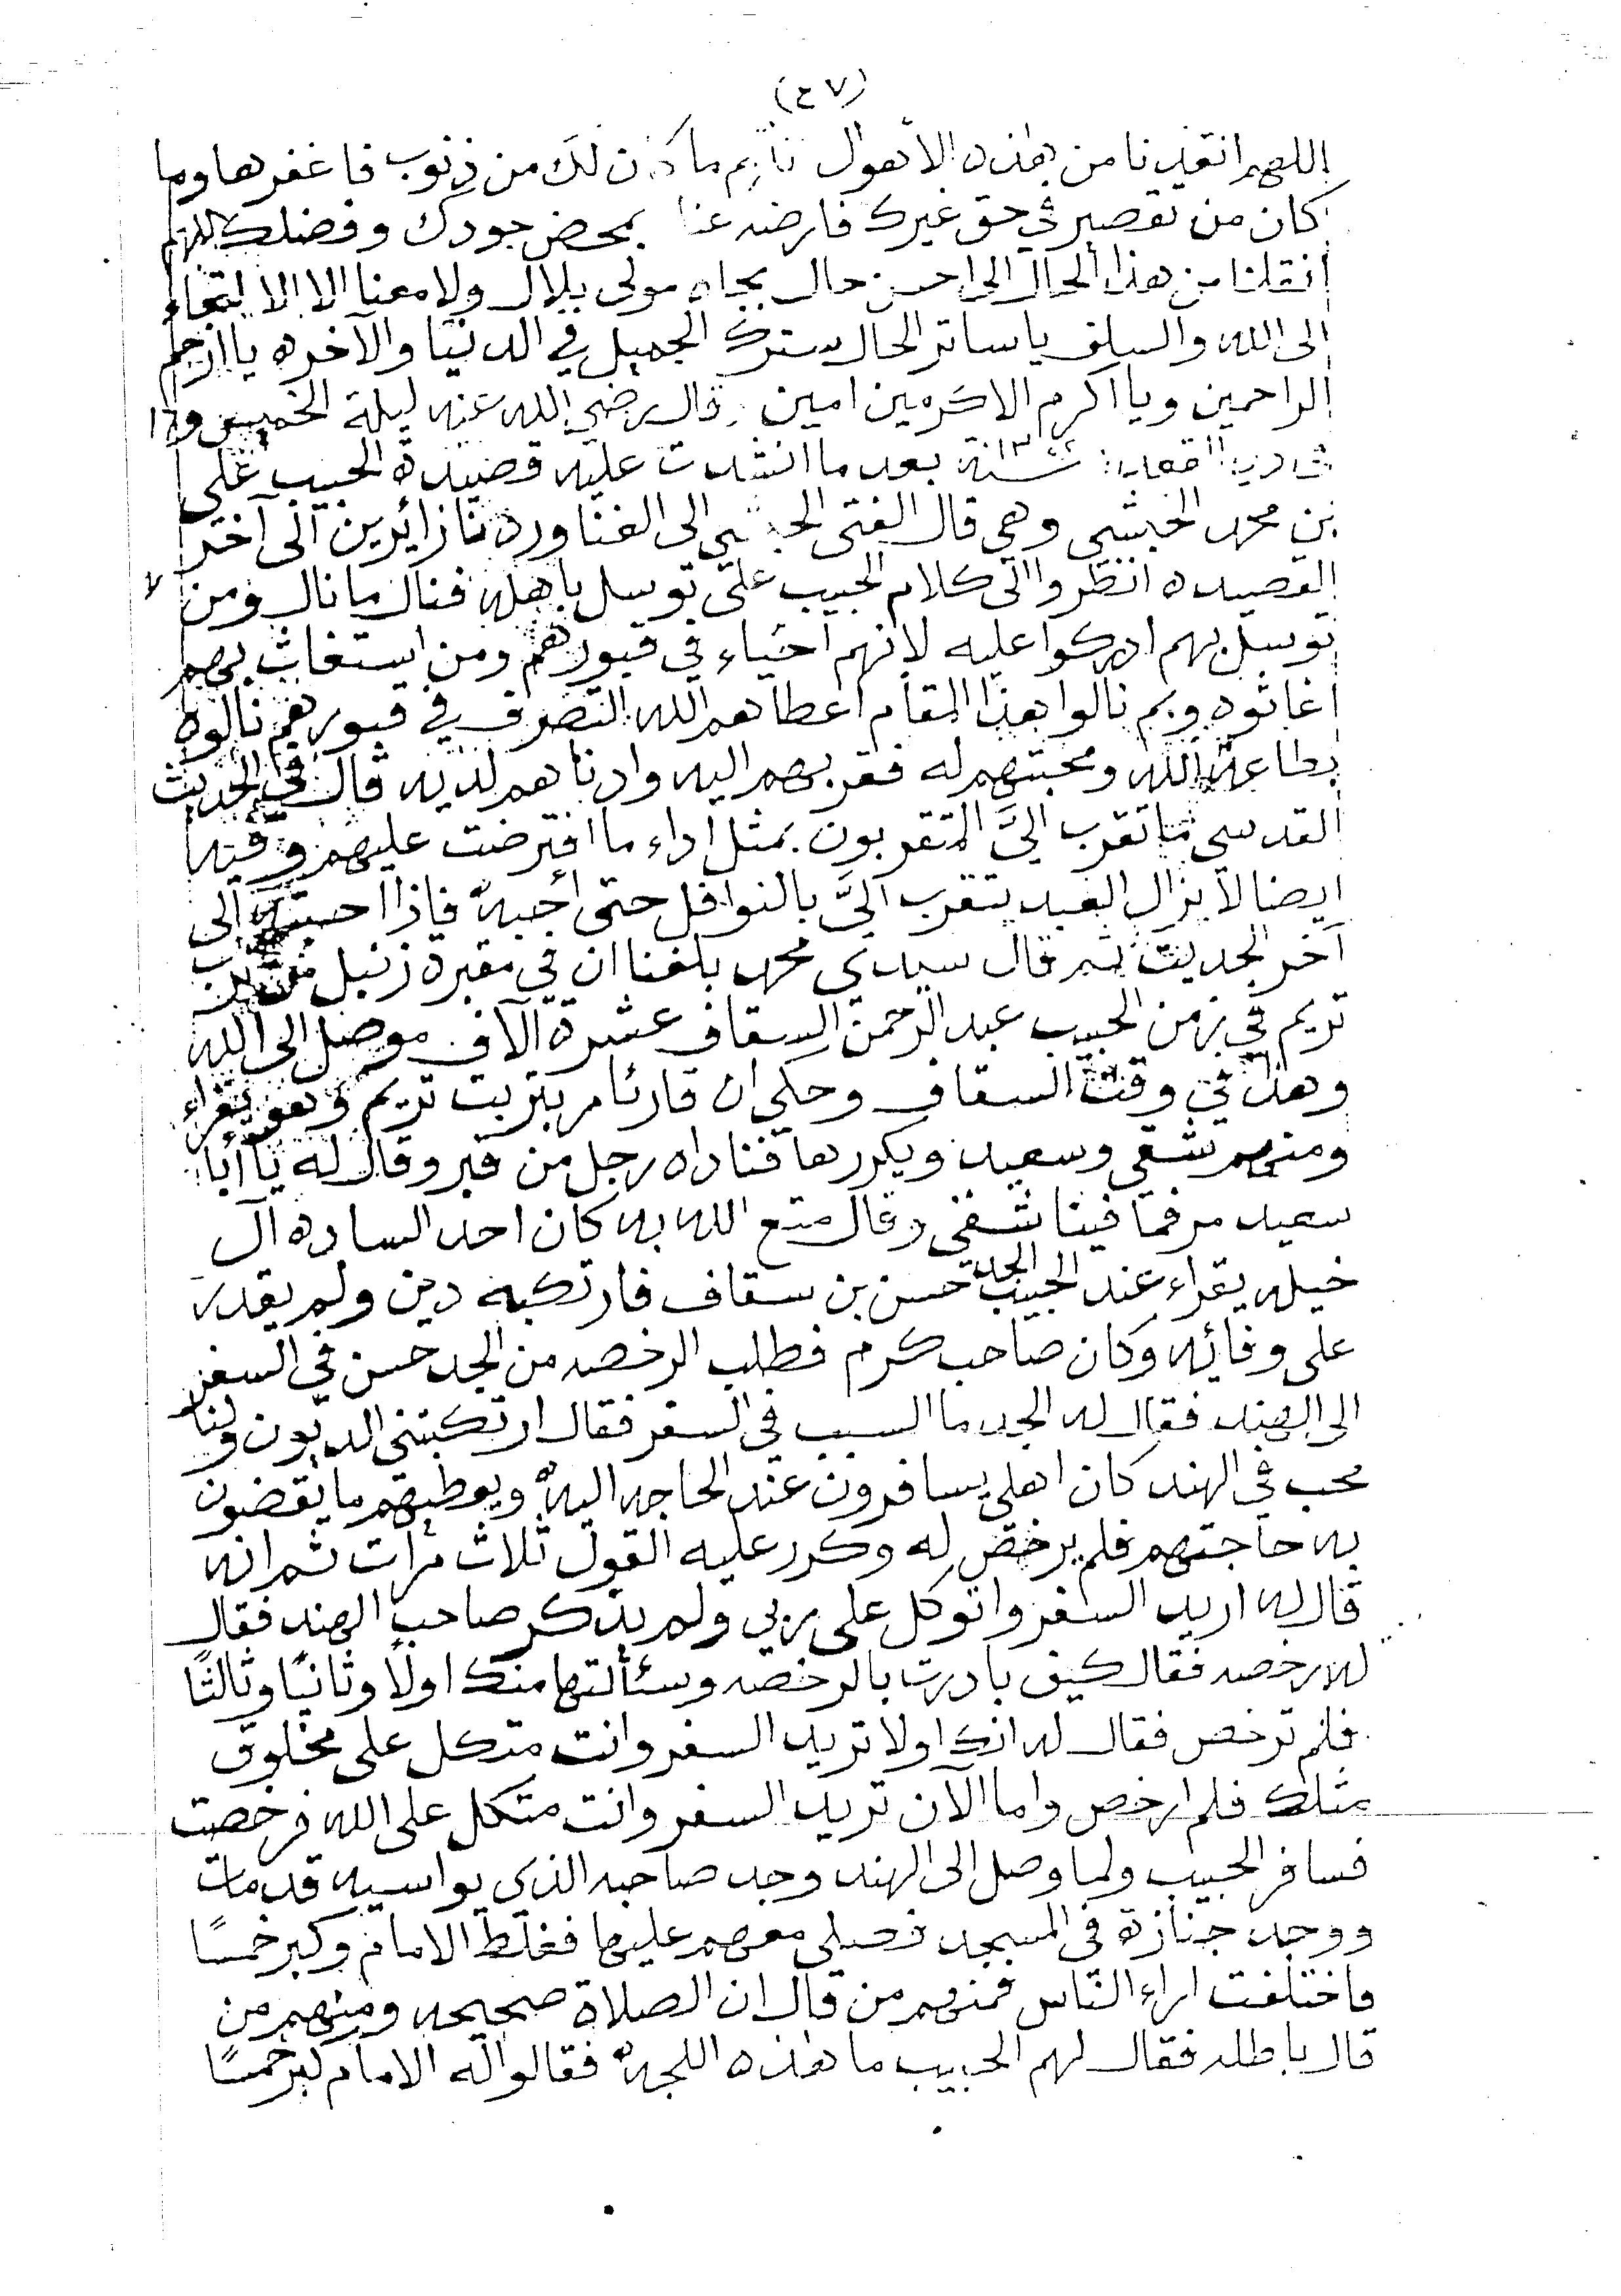 (٤٧)
اللهم انقذنا من هذه الاهوال ما كان لك من ذنوب فاغفرها وما
كان من تقصير في حق غيرك فارضه عنا بمحض جودك وفضلك اللهم
انقلنا من هذا الحال الى احسن حال بجاه مولى بلال ولا معنا الا الالتجاء
الى الله والسلف يا ساتر الحال سترك الجميل في الدنيا والآخره يا ارحم
الراحمين ويا اكرم الاكرمين امين . قال رضي الله عنه ليلة الخميس
القعده سنة بعد ما انشدت عليه قصيدة الحبيب علي
بن محمد الحبشي وهي قال الفتى الحبشي الى الغنا وردنا زائرين الى آخر
القصيده انظروا الى كلام الحبيب علي توسل باهله فنال ما نال ومن
توسل بهم ادركوا عليه لانهم احياء في قبورهم ومن استغاث بهم
اغاثوه وبم نالوا هذا المقام اعطاهم الله التصرف في قبورهم نالوه
بطاعة الله ومحبتهم له فقربهم اليه وادناهم لديه قال في الحديث
القدسي ما تقرب اليَّ المتقربون بمثل اداء ما افترضت عليهم وفيه
ايضا لا يزال العبد يتقرب اليَّ بالنوافل حتى أحبهُ فاذا احببته الى
آخر الحديث ثم قال سيدي محمد بلغنا ان في مقبرة زنبل من
تريم في زمن الحبيب عبد الرحمن السقاف عشرة آلاف موصل الى الله
وهذا في وقت السقاف وحكي ان قارئا مر بتربت تريم وهو يقراء
ومنهم شقي وسعيد ويكررها فناداه رجل من قبر وقال له يا أبا
سعيد مر فما فينا شقي وقال متع الله به كان احد الساده آل
خيله يقراء عند الحبيب الجد حسن بن سقاف فارتكبه دين ولم يقدر
على وفائه وكان صاحب كرم فطلب الرخصه من الجد حسن في السفر
الى الهند فقال له الجد ما السبب في السفر فقال ارتكبتني الديون ولنا
محب في الهند كان اهلي يسافرون عند الحاجه اليه ويعطيهم ما يقضون
به حاجتهم فلم يرخص له وكرر عليه القول ثلاث مرات ثم انه
قال له اريد السفر واتوكل على ربي ولم يذكر صاحب الهند فقال
له رخصه فقال كيف بادرت بالرخصه وسئألتها منك اولاً وثانيًا وثالثًا
فلم ترخص فقال له انك اولا تريد السفر وانت متكل على مخلوق
مثلك فلم ارخص واما الآن تريد السفر وانت متكل على الله فرخصت
فسافر الحبيب ولما وصل الى الهند وجد صاحبه الذي يواسيه قد مات
ووجد جنازة في المسجد فصلى معهم عليها فغلط الامام وكبر خمسًا
فاختلفت اراء الناس فمنهم من قال ان الصلاة صحيحه ومنهم من
قال باطله فقال لهم الحبيب ما هذه اللجه فقالوا له الامام كبر خمسًا